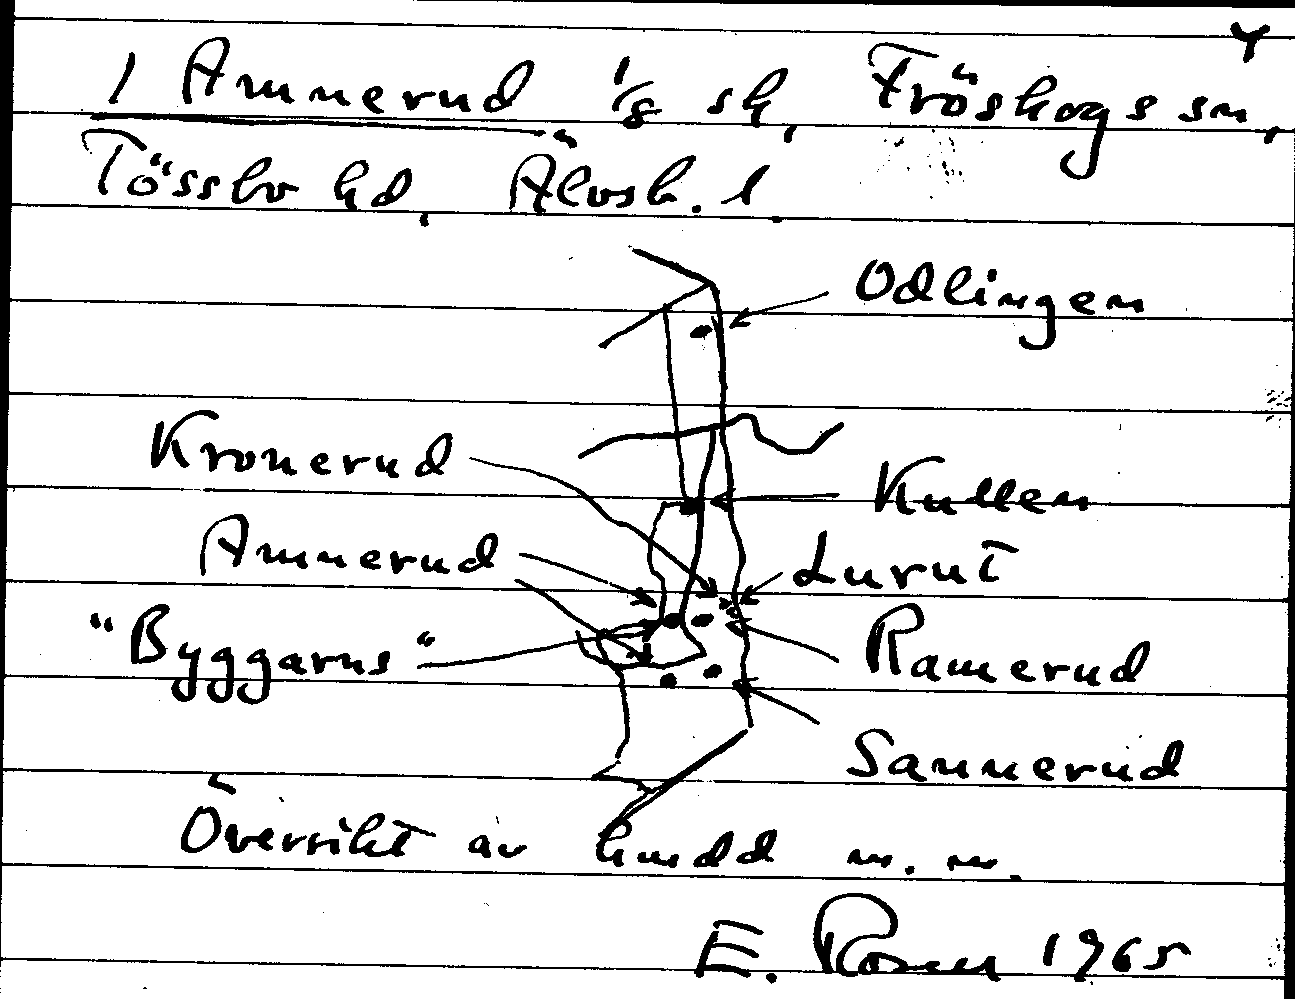 4
1 Amnerud 1/8 sk, Fröskogs sn,
Tössbo hd, Älvsb. l.
Odlingen
Kronerud
Kullen
Amnerud
Lurut
"Byggarns"
Ramerud
Sannerud
Översikt av hmdd m. m.
E. Rosen 1965